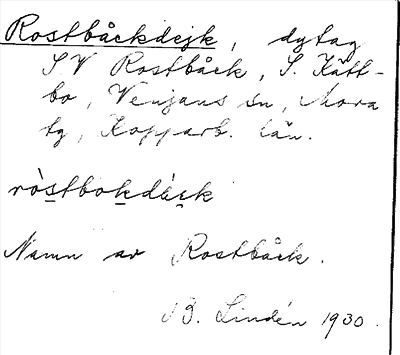 Rostbåckdejk, dytag
SV Rostbåck, S. Kätt-
bo, Venjans sn, Mora
tg, Kopparb. län.
ròstbokdàik
Namn av Rostbåck.
B. Lindén 1930.